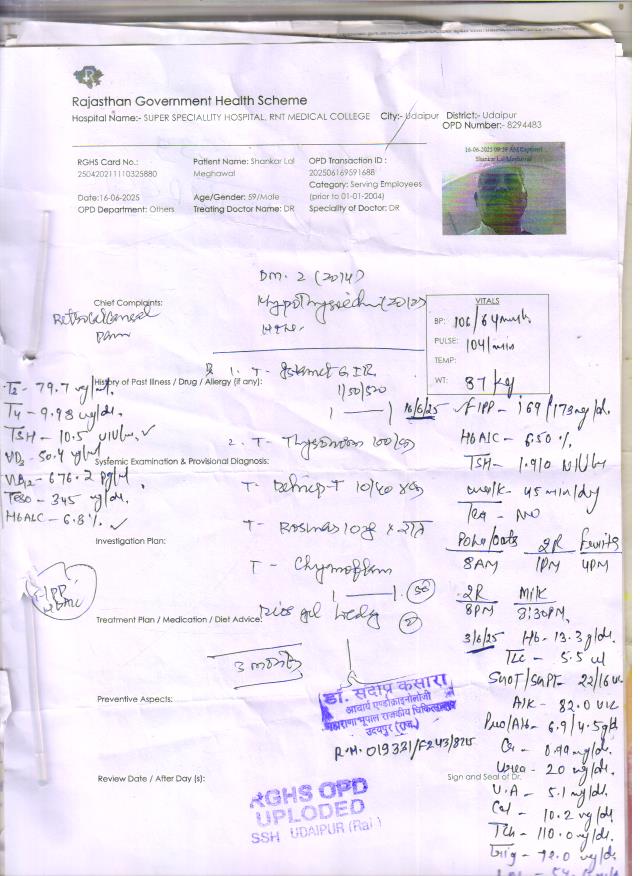 Rajasthan Government Health Scheme
Hospital Name:- SUPER SPECIALLITY HOSPITAL, RNT MEDICAL COLLEGE City:- Udaipur District:- Udaipur
OPD Number:- 8294483
RGHS Card No.:
250420211110325880
Patient Name: Shankar Lal
Meghawal
OPD Transaction ID :
202506169591688
Category: Serving Employees
(prior to 01-01-2004)
Date:16-06-2025
Age/Gender: 59/Male
OPD Department: Others
Treating Doctor Name: DR
Speciality of Doctor: DR
16-06-2025 09:39 AM Captured
Shankar Lal Meghawal
DM. 2 (2014)
Chief Complaints:
Pain
VITALS
BP: 106/64
PULSE: 104/min
TEMP:
WT: 87 kg
History of Past Illness / Drug / Allergy (if any):
1. T -
1/50/500
T3 - 79.7
T4 - 9.98 ug/dl.
TSH - 10.5
VD3 - 50.4
VB12 - 676.2 pg/ml
Testo - 345 ng/dl.
HbA1C - 6.8%
2. T -
Systemic Examination & Provisional Diagnosis:
T -
10/40
T -
T -
Investigation Plan:
F/PP
HbA1C
Treatment Plan / Medication / Diet Advice:
3 months
16/6/25 F/PP - 169/173 mg/dl.
HbA1C - 6.50 %.
TSH - 1.910
walk - 45 min/day
Tea - NO
Poha/Oats 2R Fruits
8AM 1PM 4PM
2R Milk
8PM 8:30PM
3/6/25 Hb - 13.3 g/dl.
TLC - 5.5 ul
SGOT/SGPT - 22/16
Alk - 82.0
Pro/Alb - 6.9/4.5 g/dl
Cr - 0.99 mg/dl.
Urea - 20 mg/dl.
U.A - 5.1 mg/dl.
Cal - 10.2 mg/dl.
Tch - 110.0 mg/dl.
Trig - 72.0 mg/dl.
Preventive Aspects:
डॉ. संदीप कंसारा
आचार्य एण्डोक्राइनोलॉजी
महाराणा भूपाल राजकीय चिकित्सालय
उदयपुर (राज.)
Review Date / After Day (s):
Sign and Seal of Dr.
RGHS OPD
UPLODED
SSH UDAIPUR (Raj)